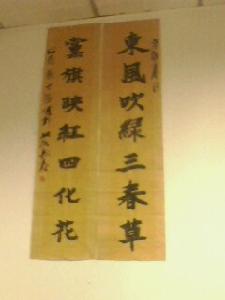 東風吹綠三春草
黨旗映紅四化花